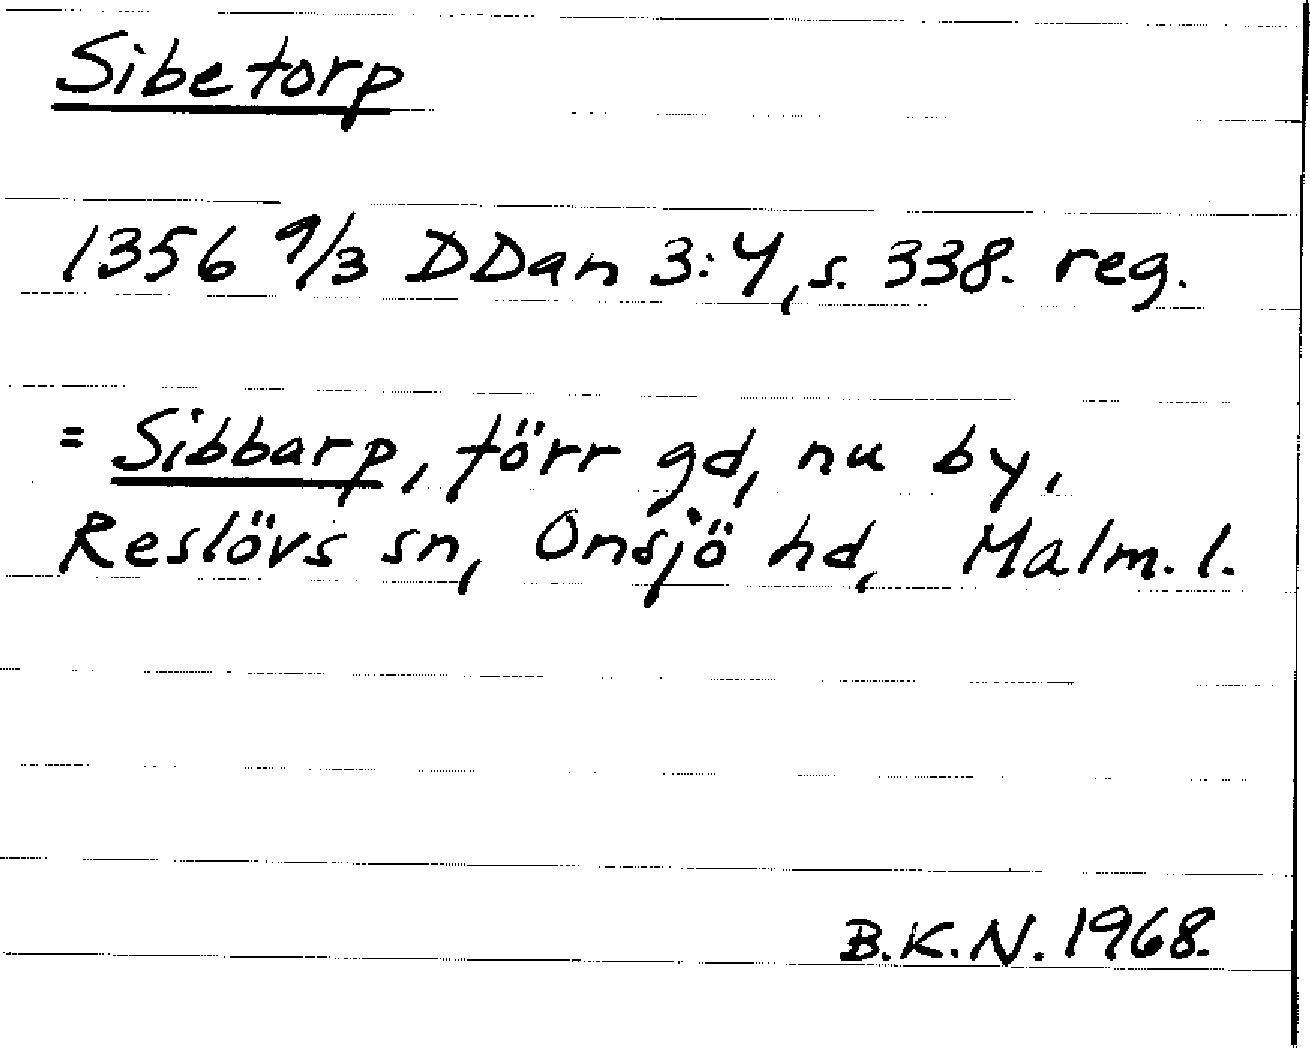 Sibetorp
1356 9/3 DDan 3:4, s. 338. reg.
= Sibbarp, förr gd, nu by,
Reslövs sn, Onsjö hd, Malm. l.
B.K.N. 1968.